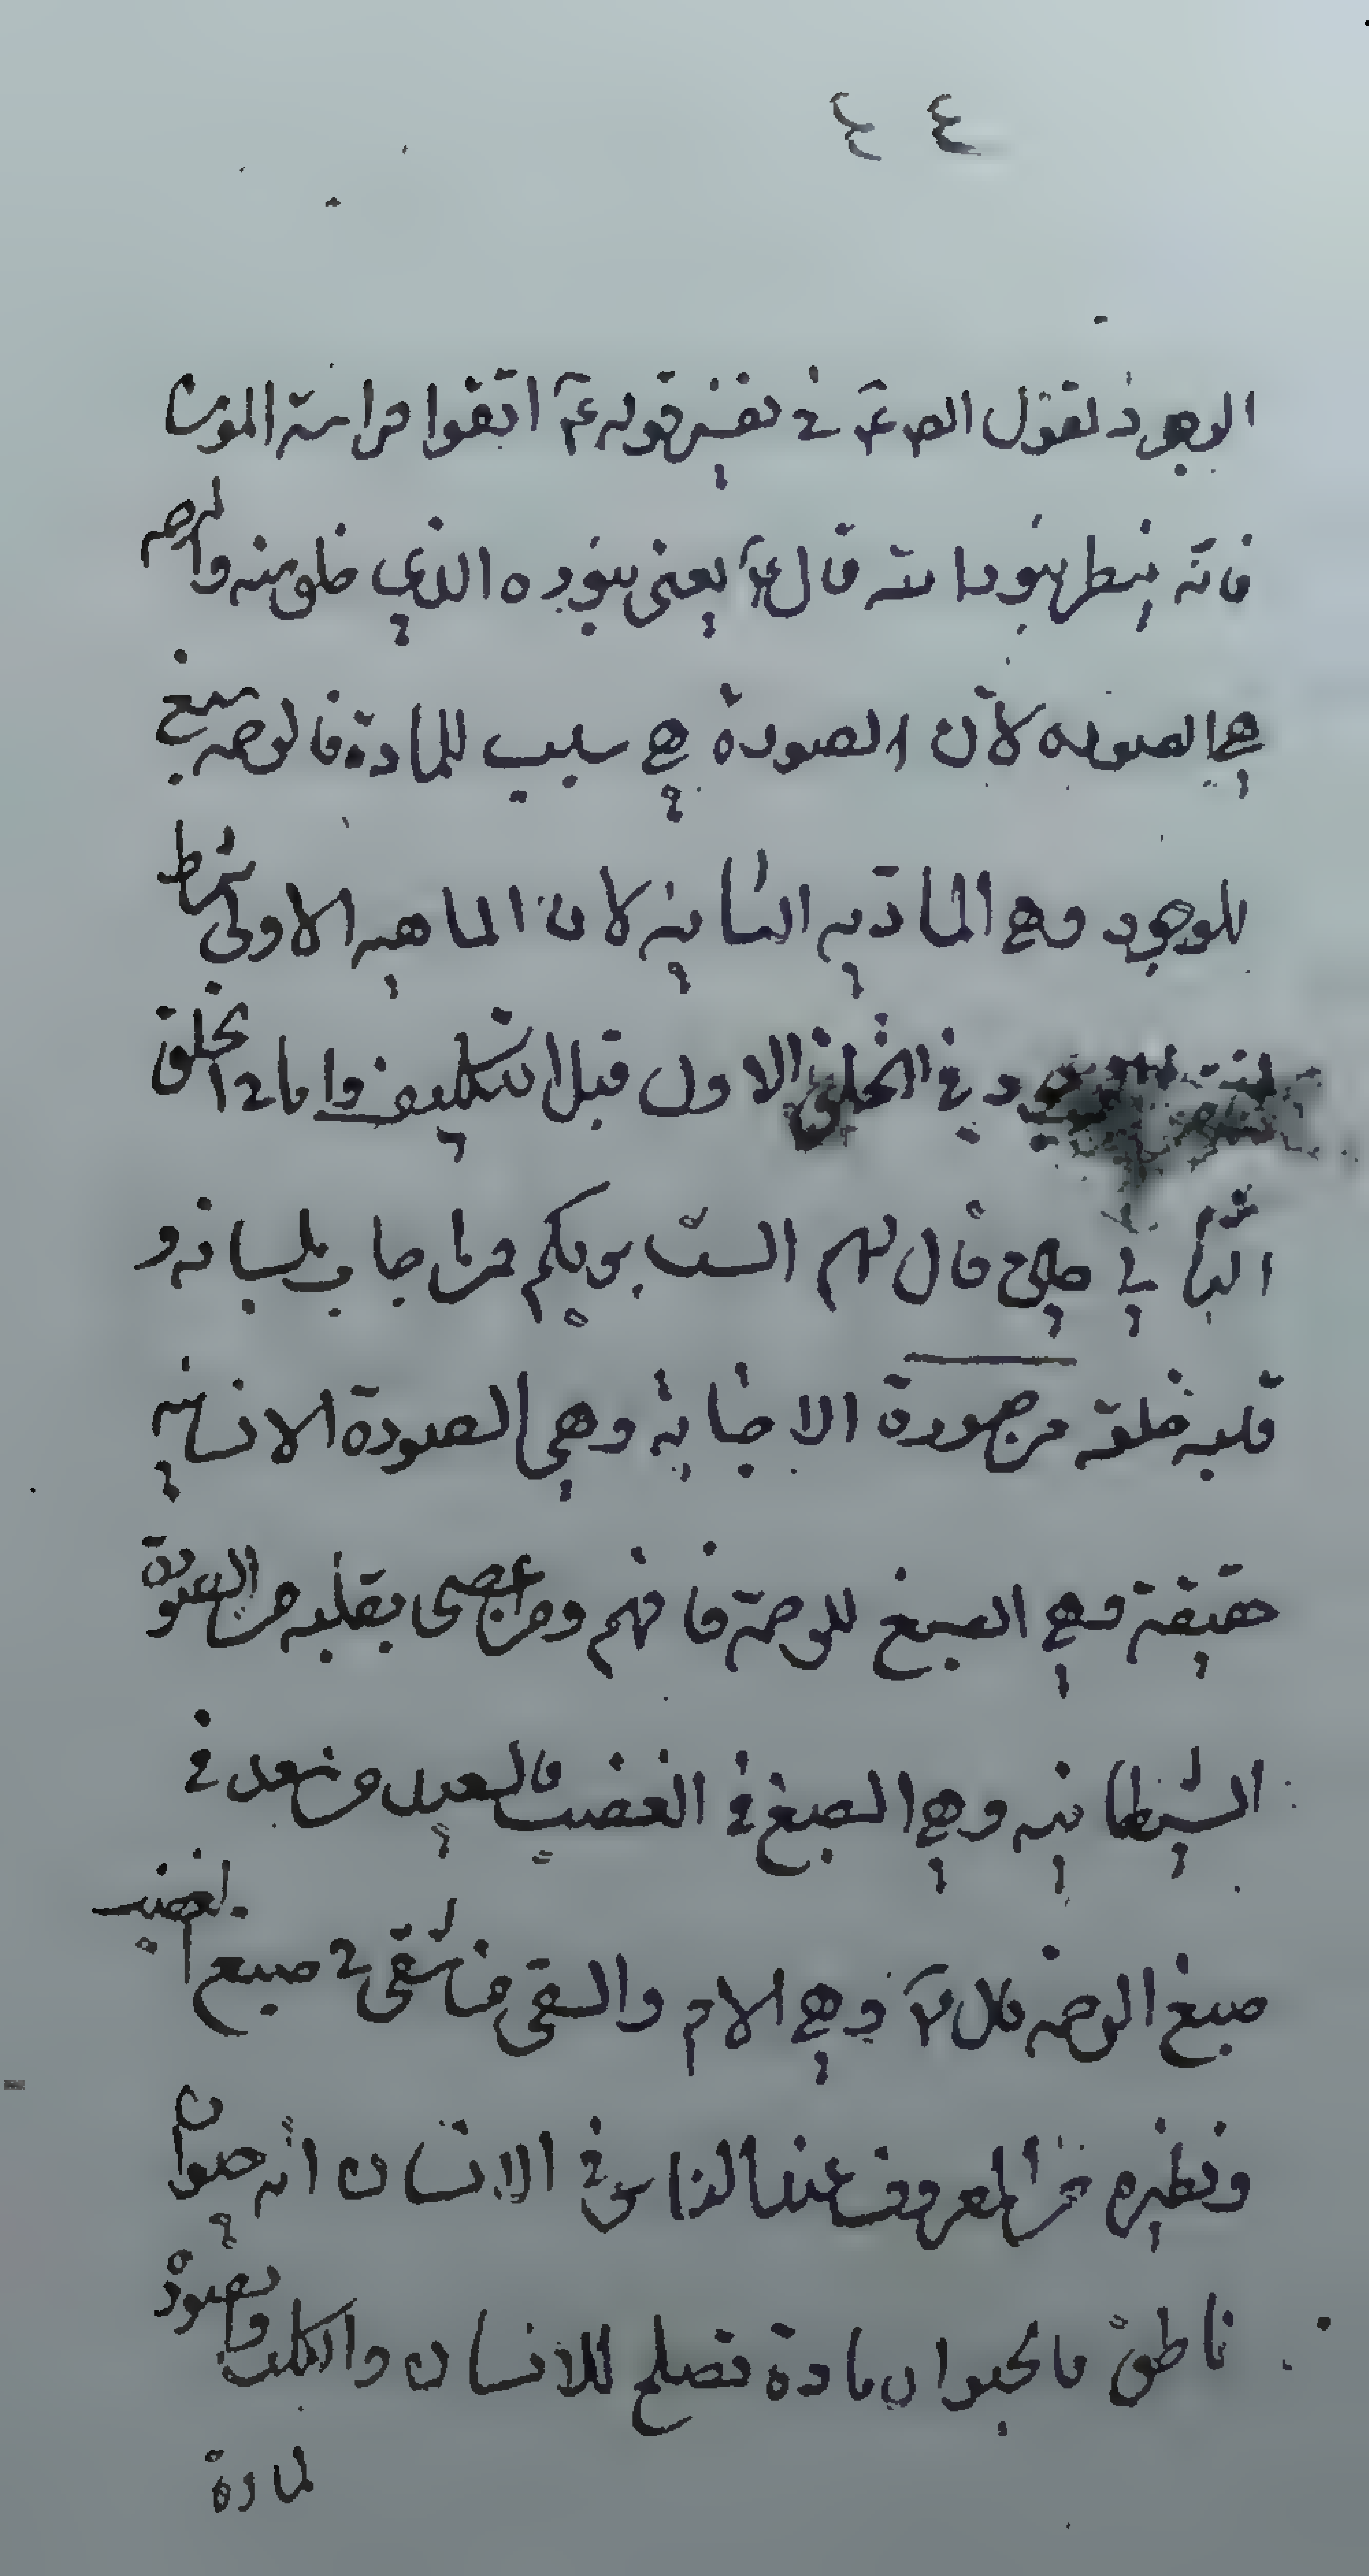 ٤٤
الوجود لقول الص ع في تفسير قوله ع اتقوا فراسة المومن
فانه ينظر بنور الله قال ع يعني بنوره الذي خلق منه والرحمه
هي الصوره لان الصورة هي سبب للمادة فالرحمه صبغ
للوجود وهي المادته الثانيه لان الماهيه الاولى شرط
د في الخلق الاول قبل التكليف واما في الخلق
الثاني حين قال لهم الست بربكم فمن اجاب بلسانه و
قلبه خلقه من صورة الاجابة وهي الصورة الانسانيه
حقيقة وهي الصبغ للرحمة فافهم ومن عصى بقلبه من الصورة
الشيطانيه وهي الصبغ في الغضب فالسعيد من سعد في
صبغ الرحمه قال ع وهي الام والشقي من شقى في صبغ الغضب
ونظيره من المعروف عند الناس في الانسان انه حيوان
ناطق فالحيوان مادة تصلح للانسان والكلب وبصورة
لمادة